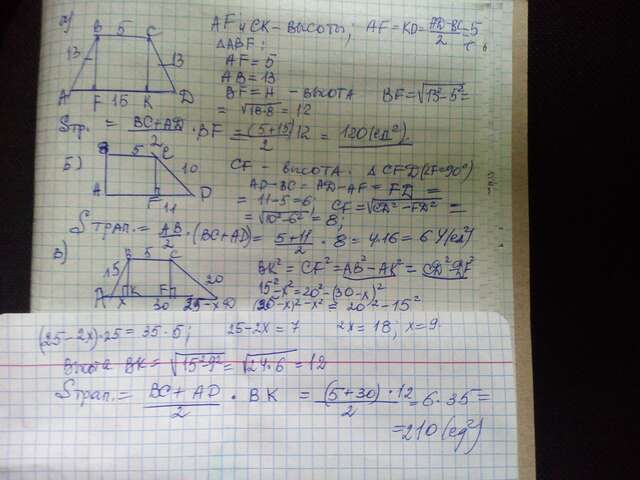 а) B 5 C
13 13
A F 15 K D
AF и CK - высоты; AF = KD = (AD-BC)/2 = 5
ΔABF:
AF = 5
AB = 13
BF = H - высота BF = √13²-5² =
= √18·8 = 12
Sтр. = (BC+AD)/2 · BF = (5+15)/2 · 12 = 120 (ед²).
Б) B 5 C
10
A F D
11
CF - высота. ΔCFD (∠F=90°)
AD-BC = AD-AF = FD =
= 11-5 = 6; CF = √CD²-FD² =
= √10²-6² = 8;
Sтрап. = AB/2 · (BC+AD) = (5+11)/2 · 8 = 4·16 = 64 (ед²)
В) B 5 C
15 20
A x K F 30 25-x D
BK² = CF² = AB²-AK² = CD²-DF²
15²-x² = 20²-(30-x)²
(25-x)²-x² = 20²-15²
(25-2x)·25 = 35·5; 25-2x = 7 2x = 18; x = 9.
Высота BK = √15²-9² = √24·6 = 12
Sтрап. = (BC+AD)/2 · BK = (5+30)·12/2 = 6·35 =
= 210 (ед²)